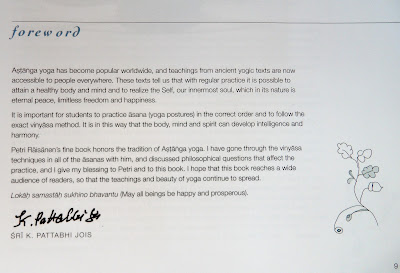 foreword
Aṣṭāṅga yoga has become popular worldwide, and teachings from ancient yogic texts are now
accessible to people everywhere. These texts tell us that with regular practice it is possible to
attain a healthy body and mind and to realize the Self, our innermost soul, which in its nature is
eternal peace, limitless freedom and happiness.
It is important for students to practice āsana (yoga postures) in the correct order and to follow the
exact vinyāsa method. It is in this way that the body, mind and spirit can develop intelligence and
harmony.
Petri Räisänen's fine book honors the tradition of Aṣṭāṅga yoga. I have gone through the vinyāsa
techniques in all of the āsanas with him, and discussed philosophical questions that affect the
practice, and I give my blessing to Petri and to this book. I hope that this book reaches a wide
audience of readers, so that the teachings and beauty of yoga continue to spread.
Lokāḥ samastāḥ sukhino bhavantu (May all beings be happy and prosperous).
K. Pattabhi Jois
ŚRĪ K. PATTABHI JOIS
9